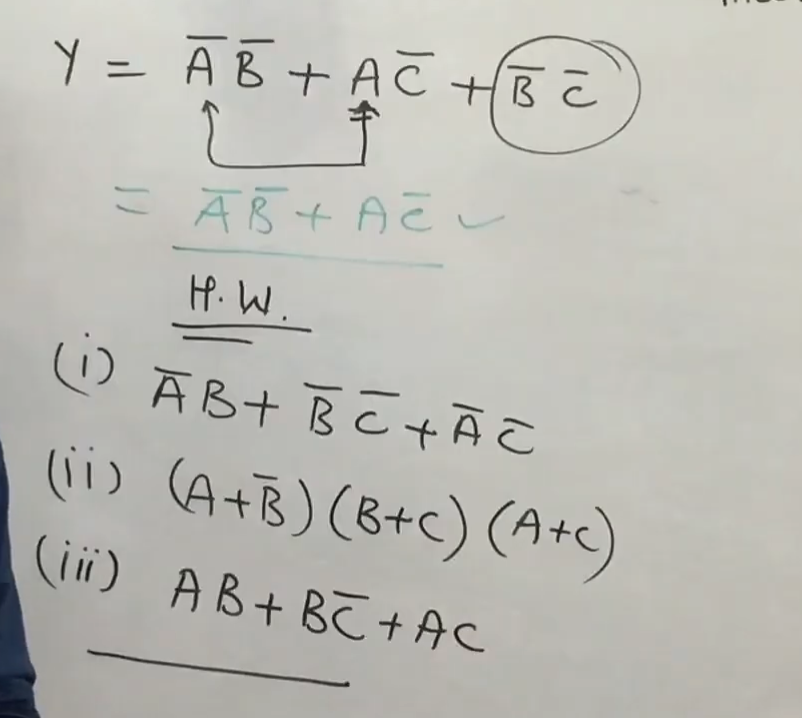 Y = A̅ B̅ + A C̅ + B̅ C̅
= A̅ B̅ + A C̅ ✓
H.W.
(i) A̅ B + B̅ C̅ + A̅ C̅
(ii) (A + B̅) (B + C) (A + C)
(iii) A B + B C̅ + A C